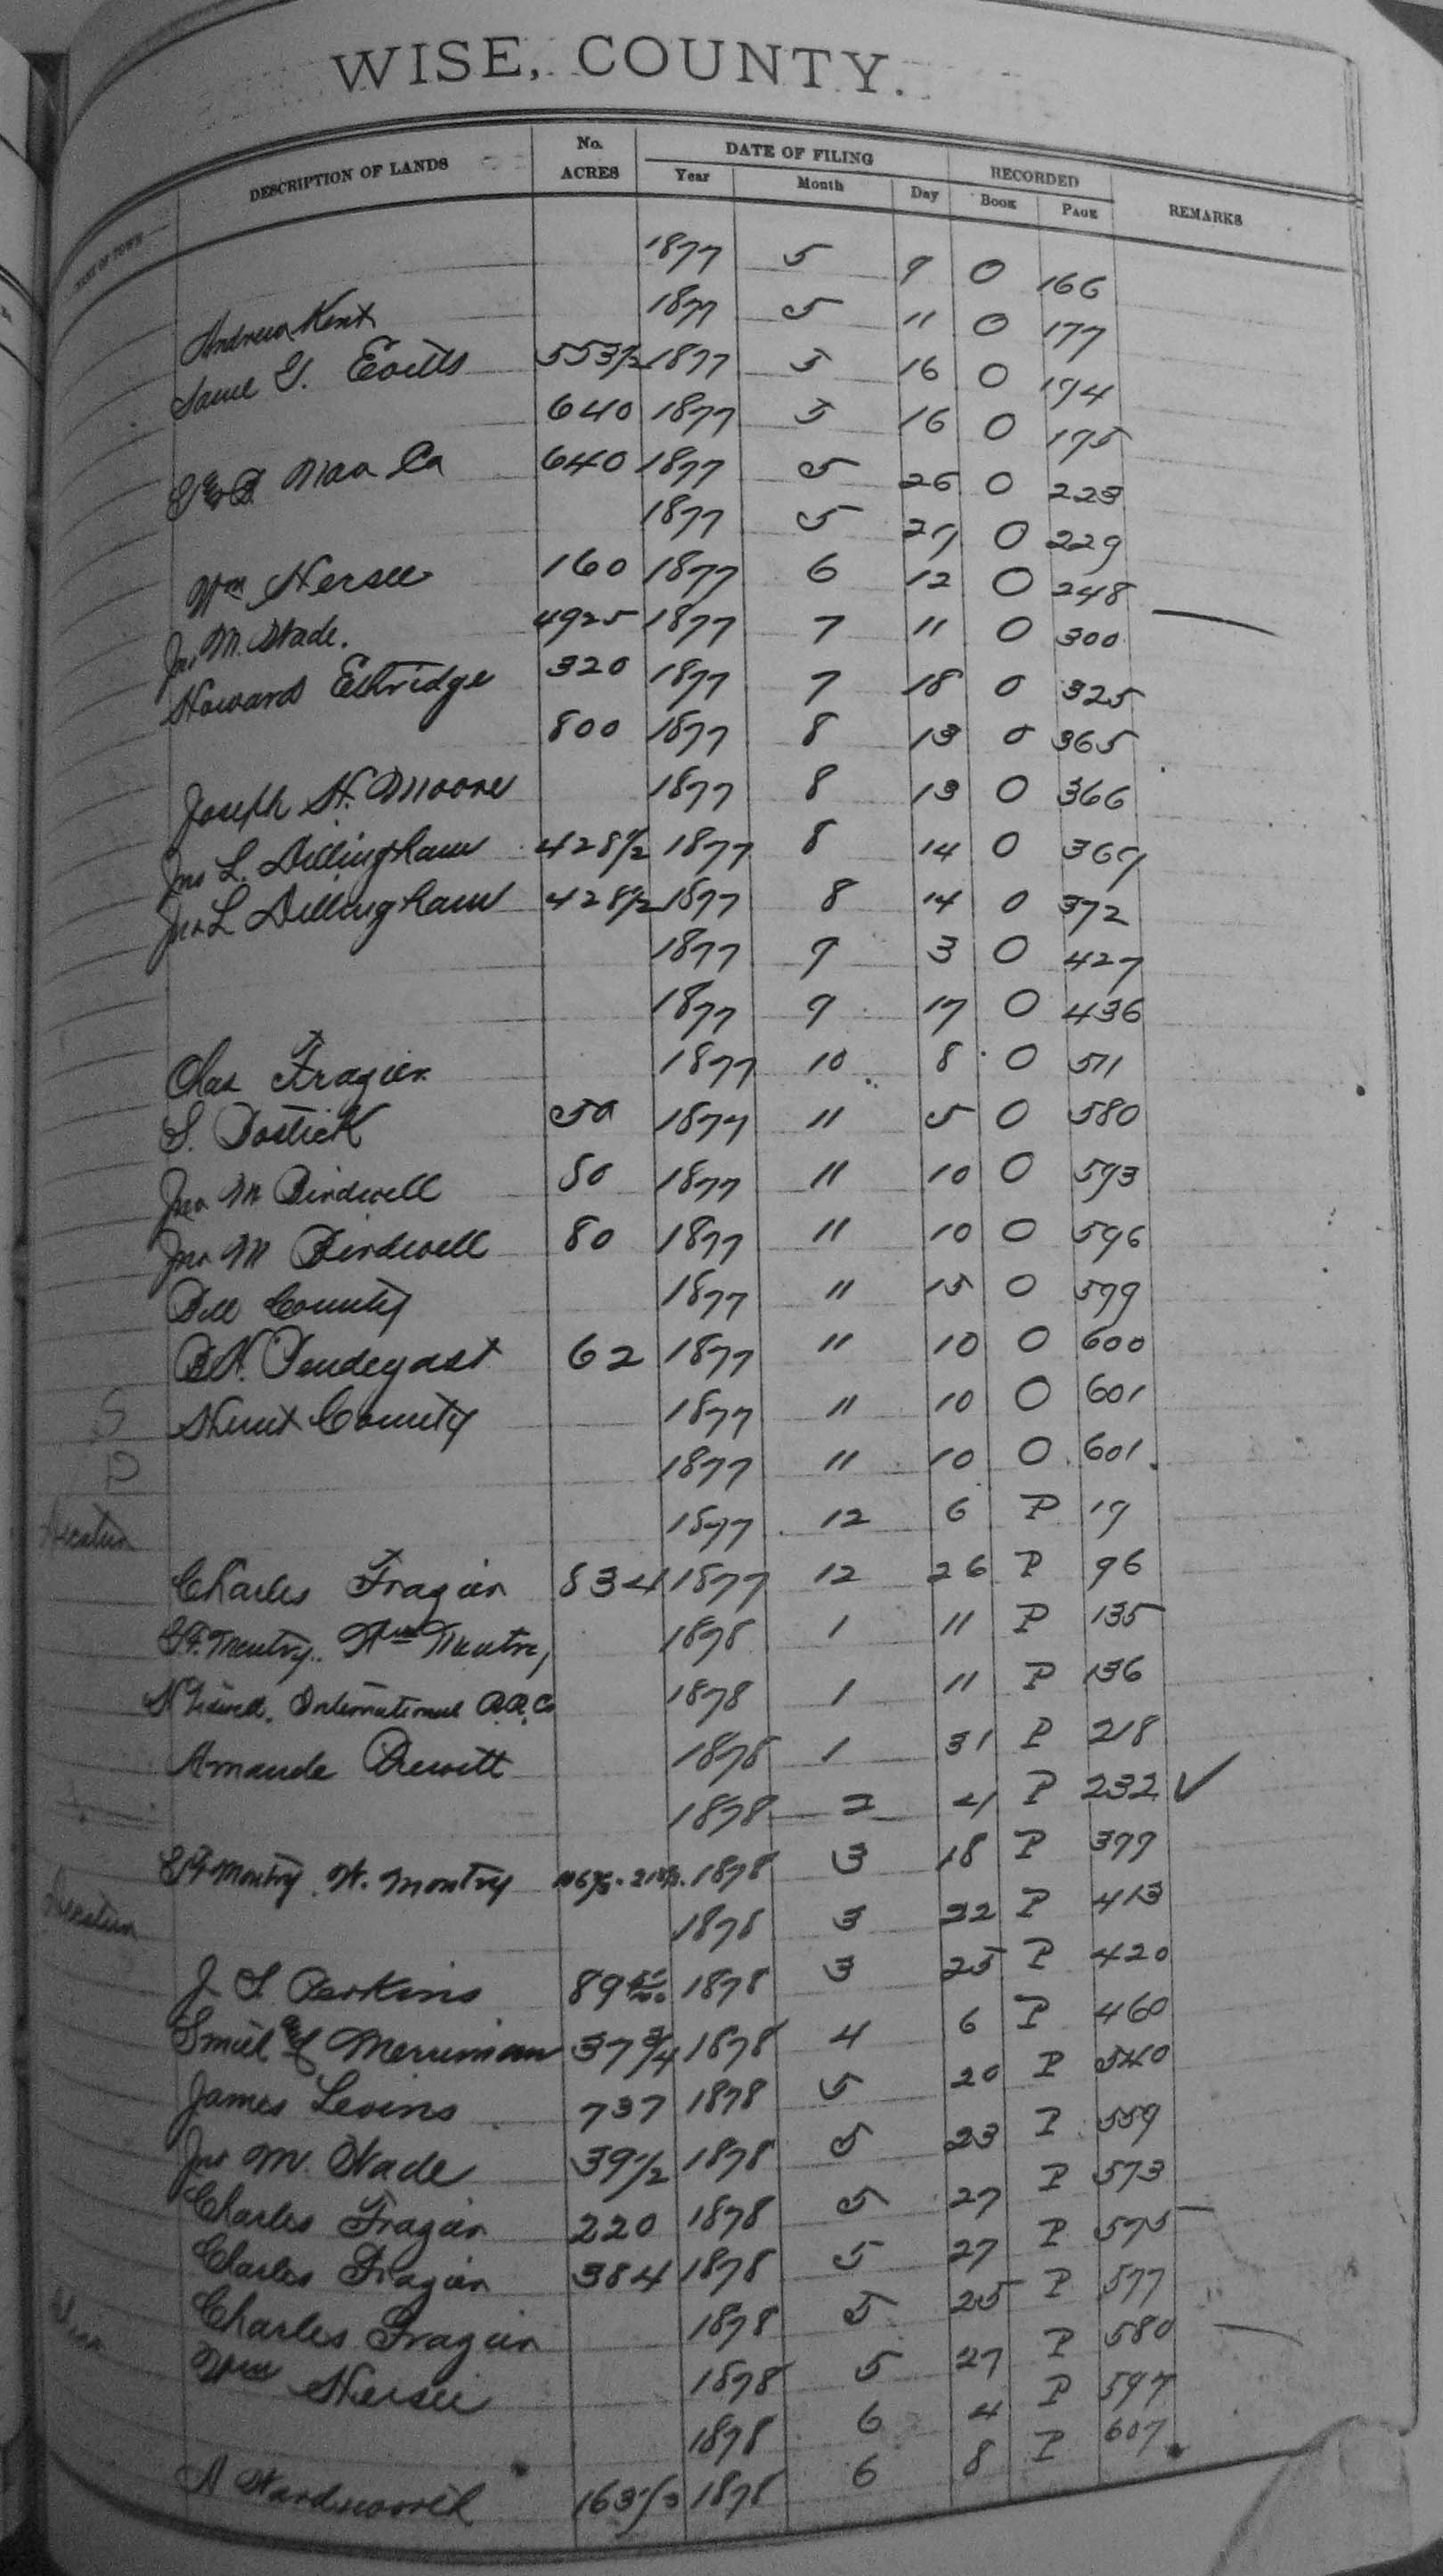 WISE, COUNTY.
DESCRIPTION OF LANDS No. ACRES DATE OF FILING RECORDED REMARKS
Year Month Day Book Page
1877 5 9 O 166
Andrew Kent 1877 5 11 O 177
G. Evitts 553 1/2 1877 5 16 O 174
640 1877 5 16 O 175
Co 640 1877 5 26 O 223
1877 5 27 O 229
Wm Hersee 160 1877 6 12 O 248
Jno M. Wade. 4925 1877 7 11 O 300
Howard Ethridge 320 1877 7 18 O 325
800 1877 8 13 O 365
Joseph H. Moore 1877 8 13 O 366
Jno L. Dillingham 428 1/2 1877 8 14 O 369
Jno L Dillingham 428 1/2 1877 8 14 O 372
1877 9 3 O 427
1877 9 17 O 436
Chas Frazier 1877 10 8 O 511
S. Bostick 50 1877 11 5 O 580
Jno M Birdwell 80 1877 11 10 O 593
Jno M Birdwell 80 1877 11 10 O 596
Bell County 1877 11 15 O 599
B.H. Pendegast 62 1877 11 10 O 600
Hunt County 1877 11 10 O 601
1877 11 10 O 601
1877 12 6 P 19
Charles Frazier 834 1877 12 26 P 96
1878 1 11 P 135
International R.R. Co 1878 1 11 P 136
Amanda Prewitt 1878 1 31 P 218
1878 2 4 P 232 ✓
W. Montry 1878 3 18 P 377
1878 3 22 P 413
J. S. Perkins 89 50/100 1878 3 25 P 420
Smith & Merriman 37 3/4 1878 4 6 P 460
James Levins 737 1878 5 20 P 540
Jno M. Wade 39 1/2 1878 5 23 P 559
Charles Frazier 220 1878 5 27 P 573
Charles Frazier 384 1878 5 27 P 575
Charles Frazier 1878 5 25 P 577
Wm Hersee 1878 5 27 P 580
1878 6 4 P 597
A Wardsworth 163 1/3 1878 6 8 P 607